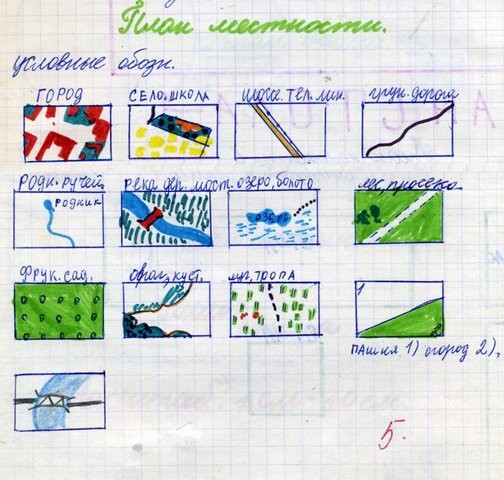 План местности.
условные обозн.
ГОРОД СЕЛО. ШКОЛА шоссе. тел. лин. грун. дорога
Родн. ручей. река дер. мост. озеро, болото лес, просека.
РОДНИК
озеро
Фрук. сад. овраг, куст. луг, тропа
1
пашня 1) огород 2),
5.